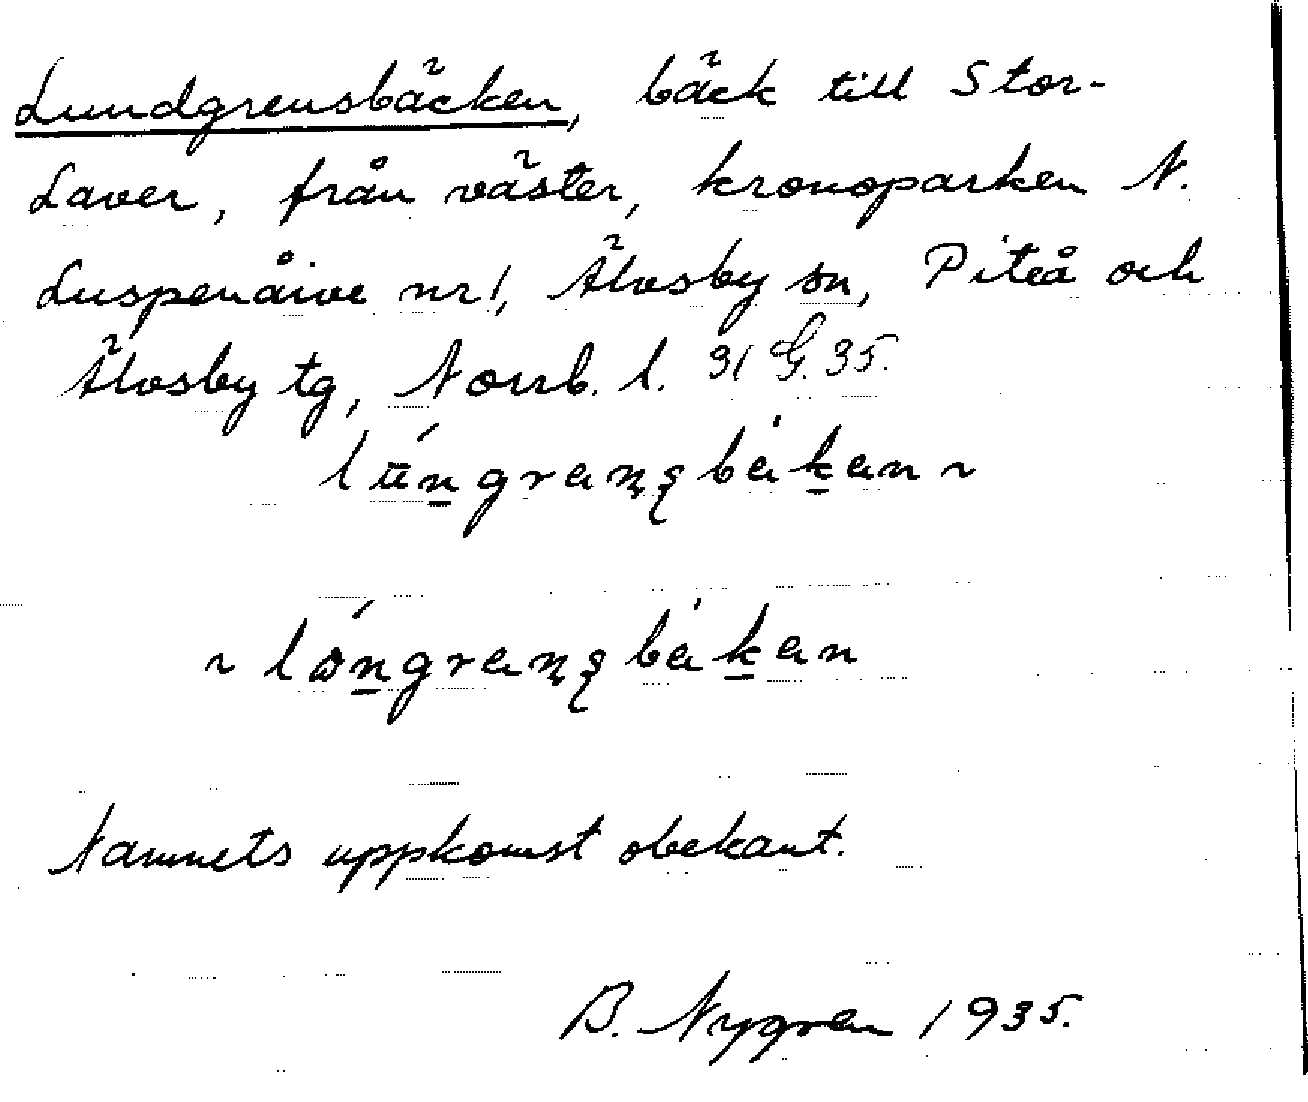 Lundgrensbäcken, bäck till Stor-
Laver, från väster, kronoparken N.
Luspenåive nr 1, Älvsby sn, Piteå och
Älvsby tg, Norrb. l. 31 G. 35.
Namnets uppkomst obekant.
B. Nygren 1935.